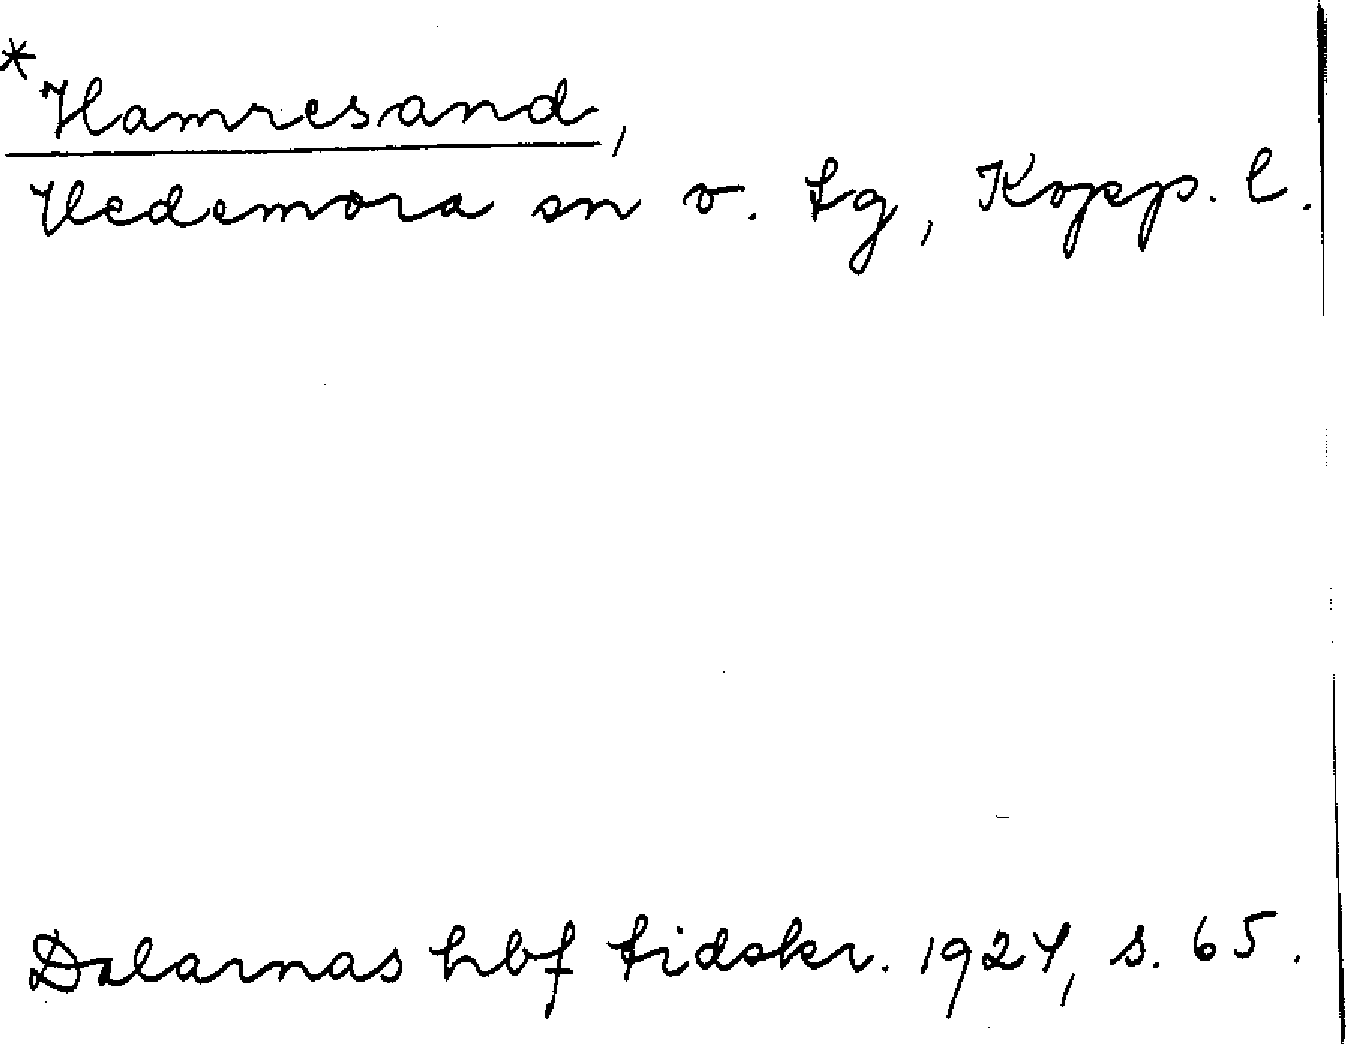 *Hamresand,
Hedemora sn o. tg, Kopp. l.
Dalarnas hbf tidskr. 1924, s. 65.